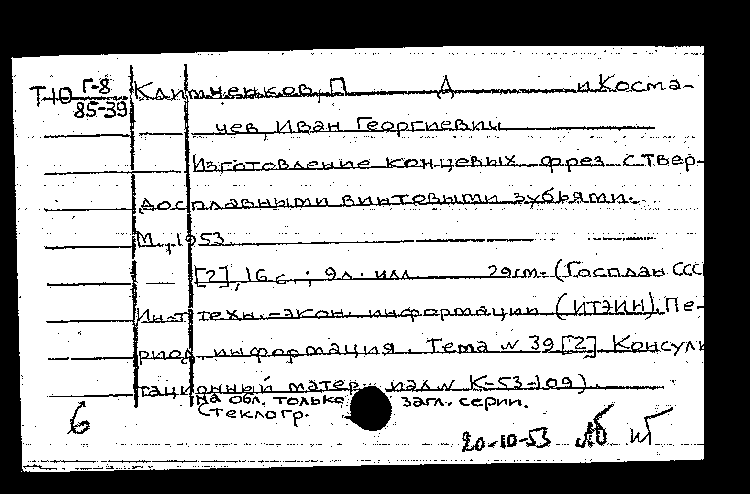 Т-10 Г-8/85-39 Климченков, П Д и Коста-
чев, Иван Георгиевич
Изготовление концевых фрез с твер-
досплавными винтовыми зубьями.
М., 1953
[2], 16 с.; 9 л. илл 29 см. (Госплан ССС
Ин-т техн.-экон. информации (ИТЭИН). Пе-
риод. информация. Тема № 39 [2]. Консуль
тационный матер К-53-109).
на обл. только загл. серии.
Стеклогр.
6
20-10-53